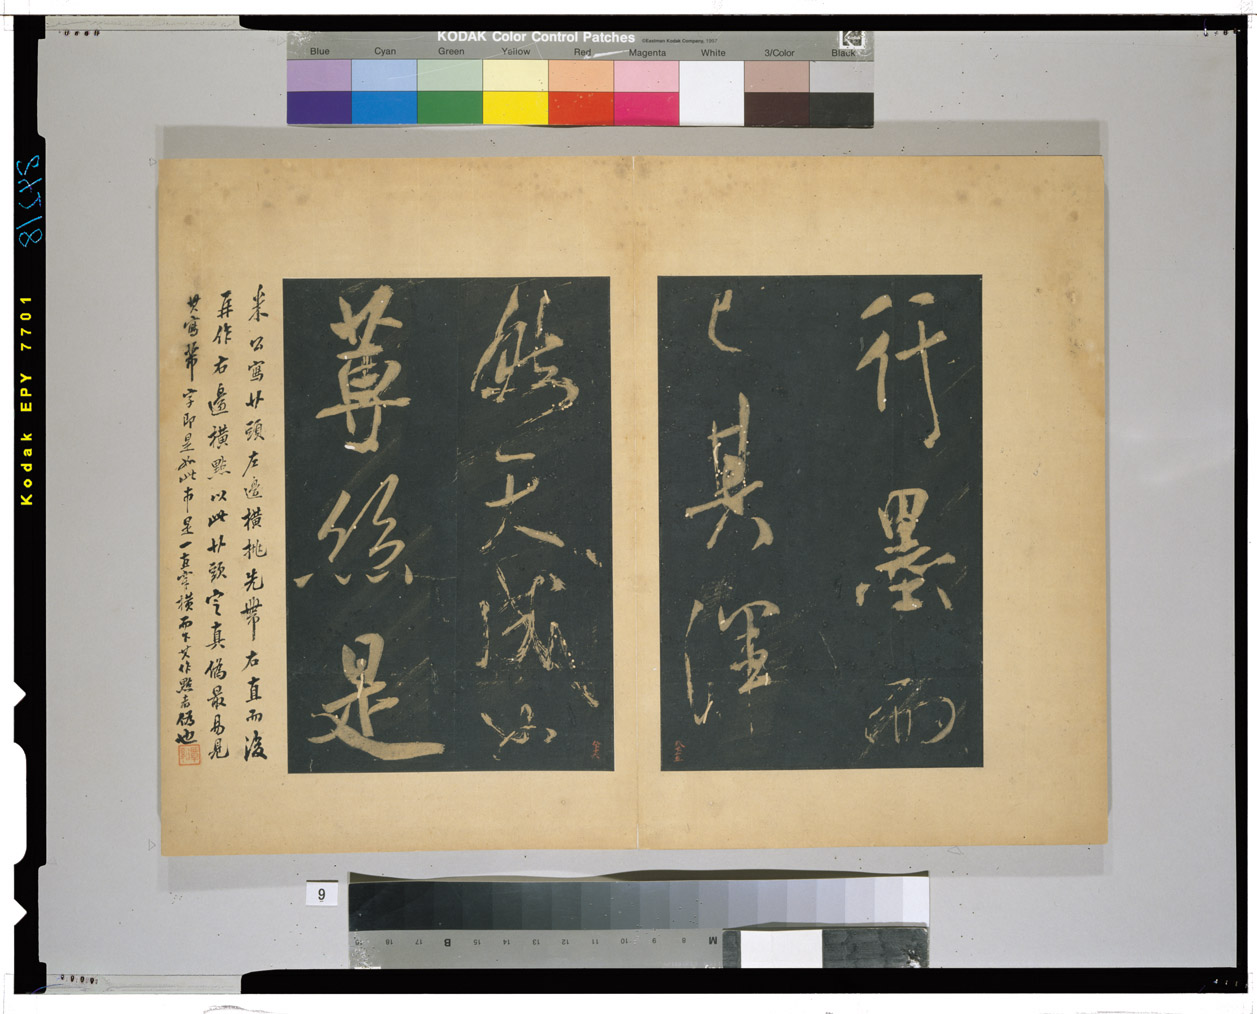 KODAK Color Control Patches
©Eastman Kodak Company, 1997
Blue Cyan Green Yellow Red Magenta White 3/Color Black
行墨而
已其渾
然天成如
蓴絲是
米公寫廾頭左邊橫挑先帶右直而後
再作右邊橫點以此廾頭定真偽最易見
其寫字即是如此市是一直字橫而下其作點者偽也
Kodak EPY 7701
9
19 18 17 B 15 14 13 12 11 10 9 8 M